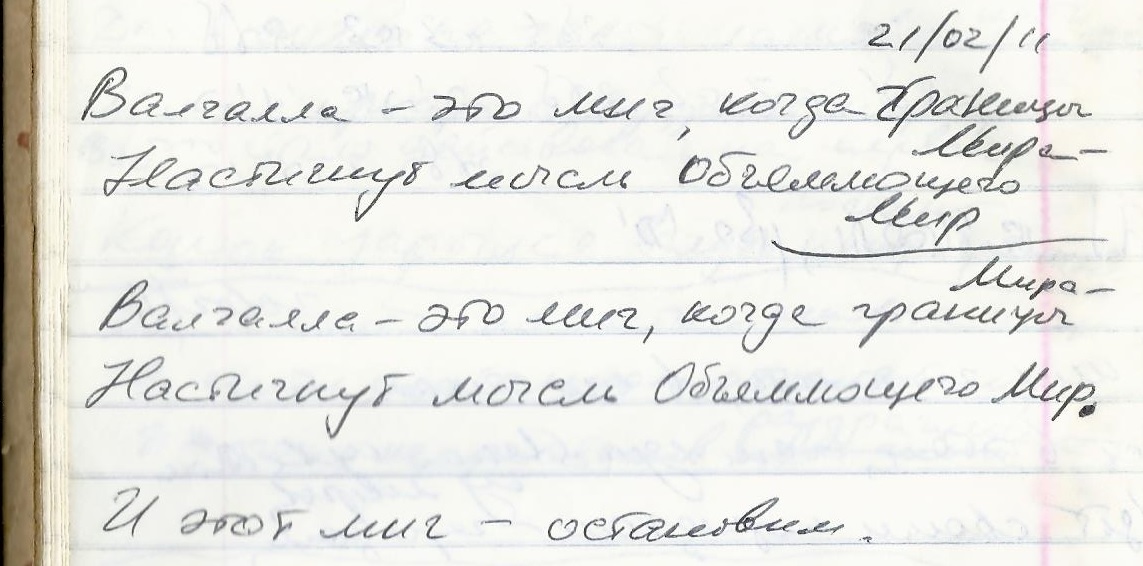 21/02/11
Валгалла – это миг, когда Границы
Мира –
Настигнут мысль Объемлющего
Мир
Мира –
Валгалла – это миг, когда границы
Настигнут мысль Объемлющего Мир.
И этот миг – остановим.